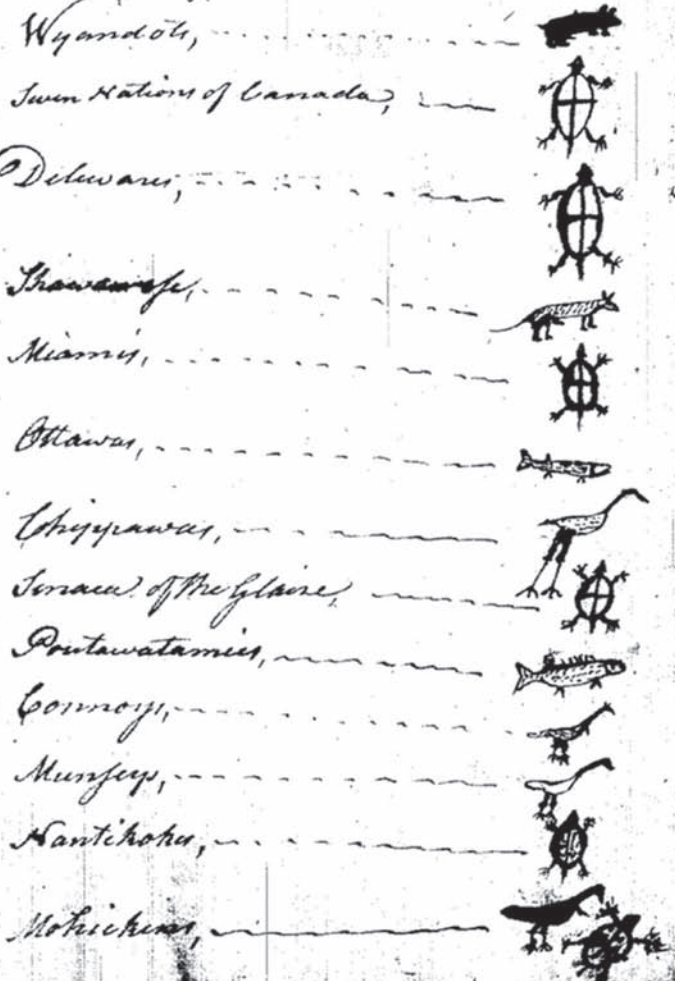 Wyandots,
Seven Nations of Canada,
Delewares,
Shawanese,
Miamis,
Ottawas,
Chippawas,
Senacas of the Glaize,
Poutawatamies,
Connoys,
Munseys,
Nantikokes,
Mohickens,